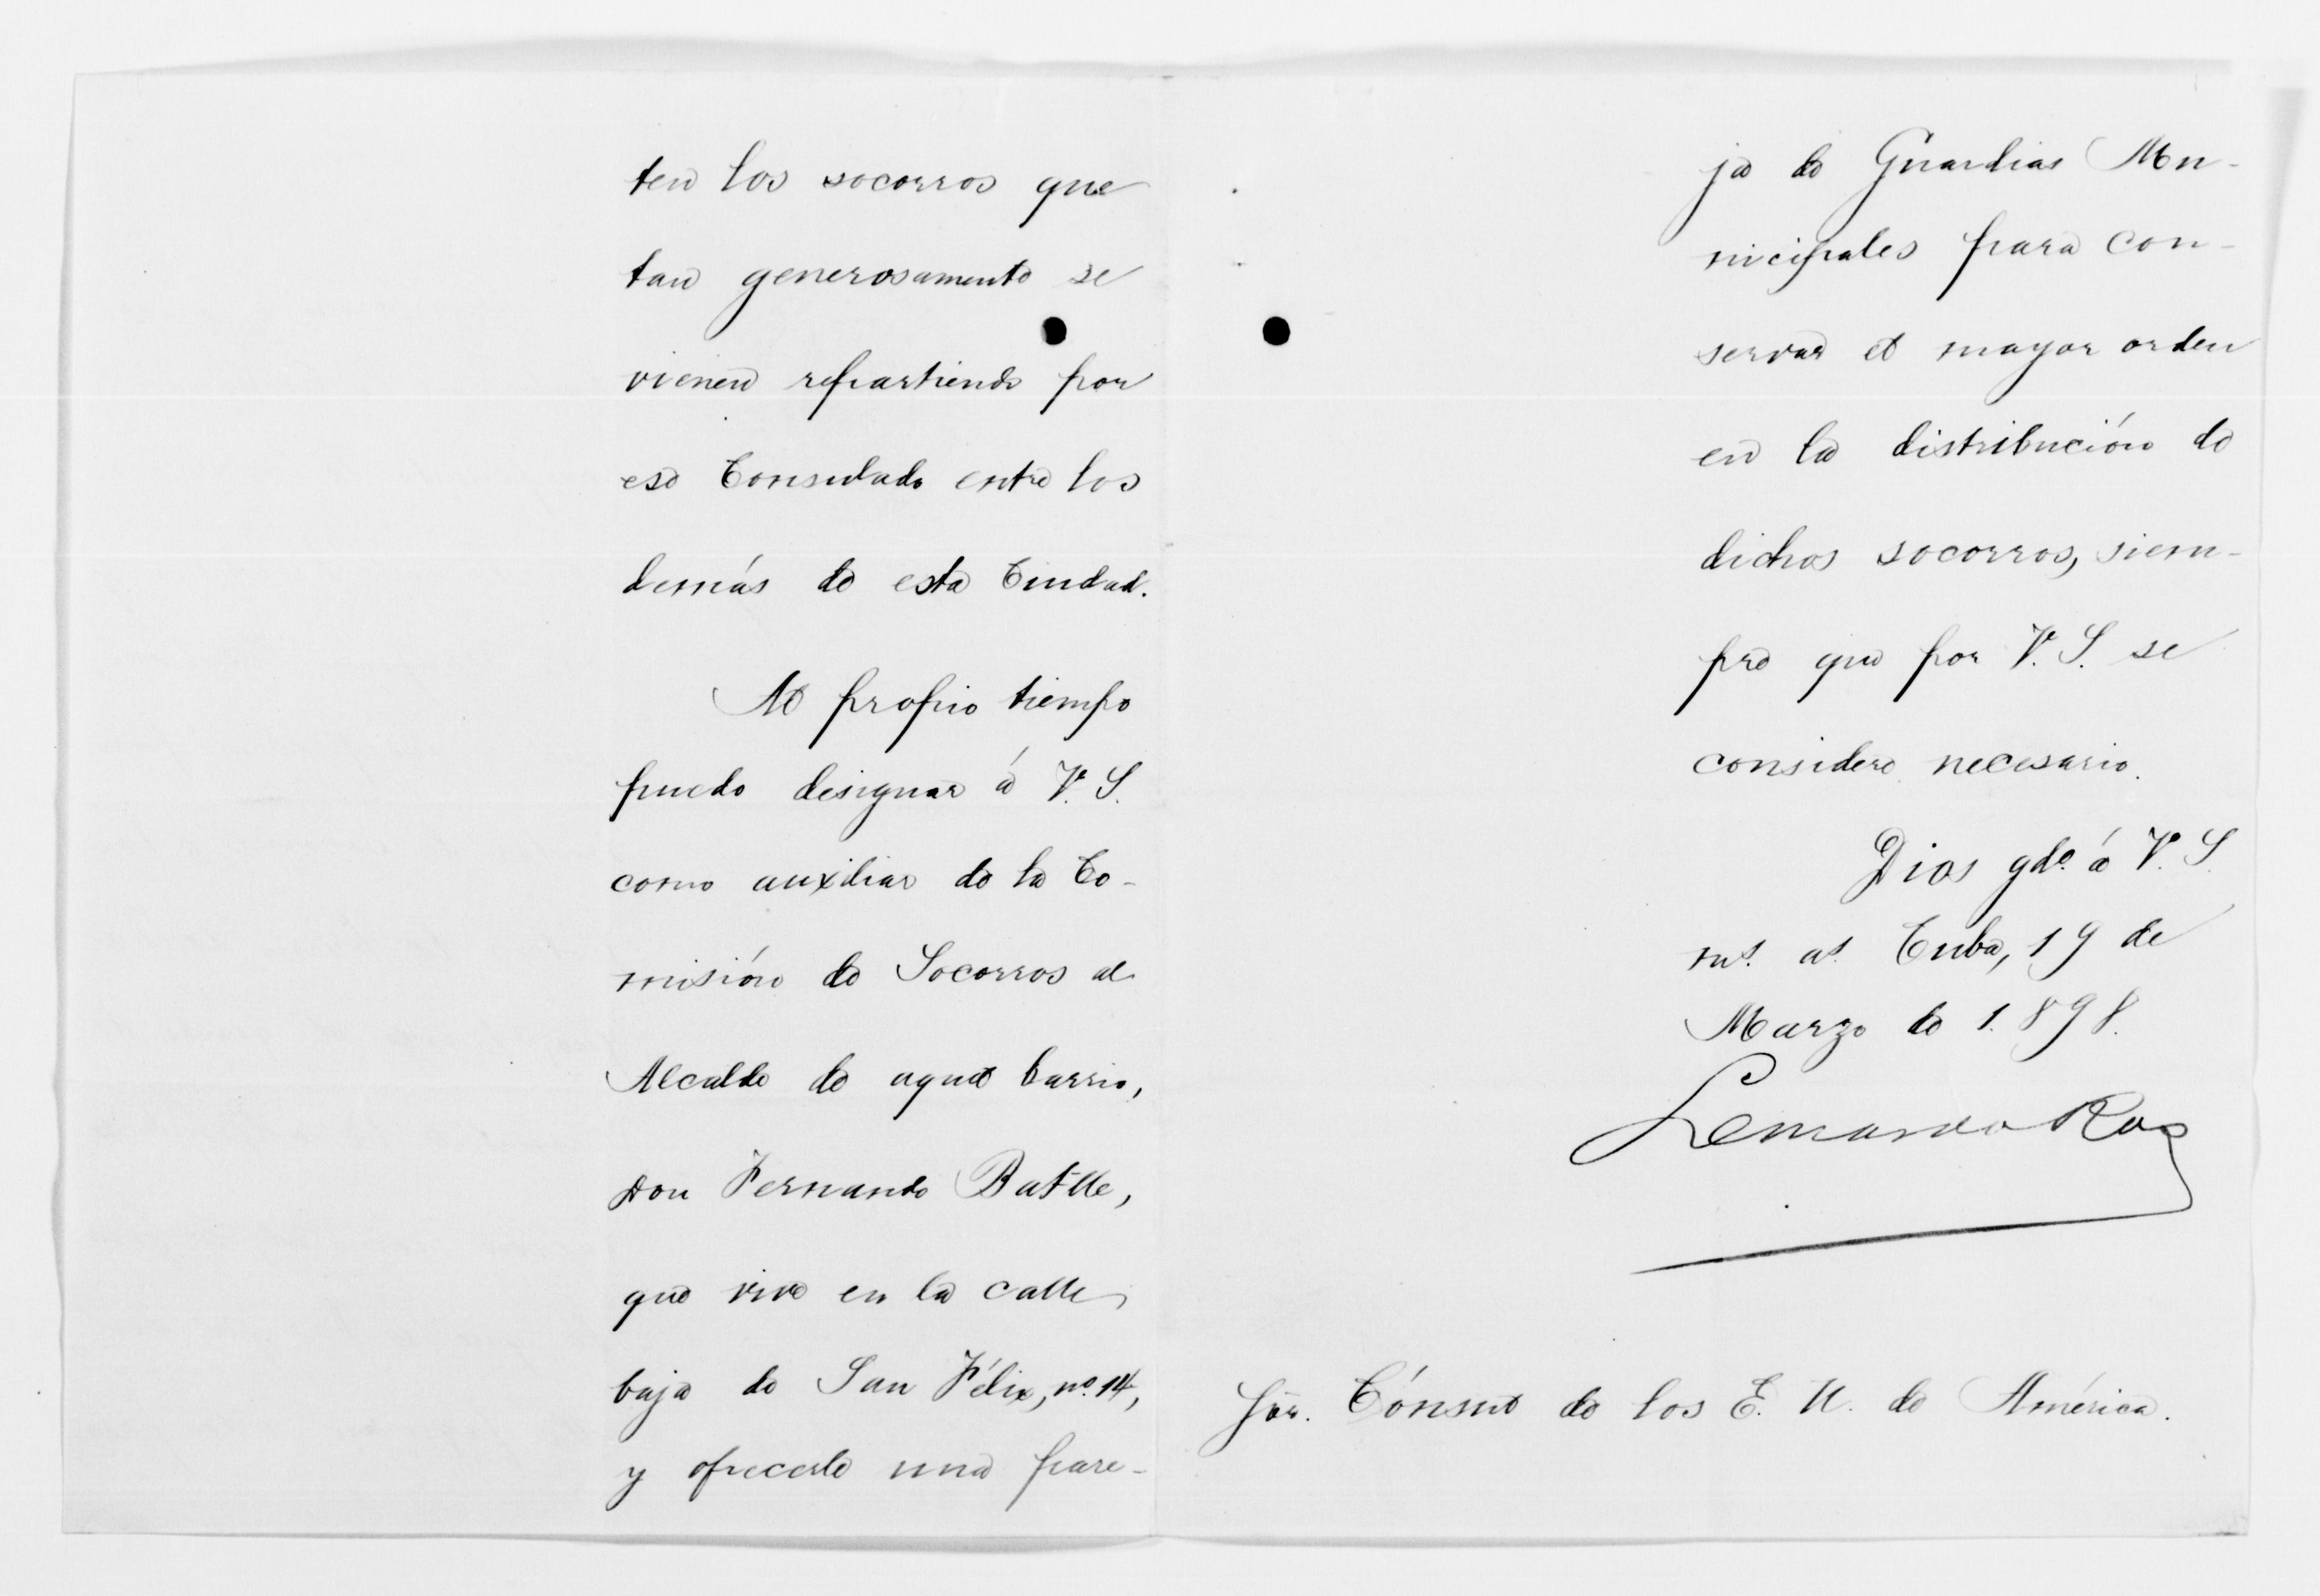 ten los socorros que
tan generosamente se
vienen repartiendo por
ese Consulado entre los
demás de esta Ciudad.
Al propio tiempo
puedo designar á V. S.
como auxiliar de la Co-
misión de Socorros al
Alcalde de aquel barrio,
Don Fernando Batlle,
que vive en la calle
baja de San Félix, nº. 14,
y ofrecerle una pare-
ja de Guardias Mu-
nicipales para con-
servar el mayor orden
en la distribución de
dichos socorros, siem-
pre que por V. S. se
considere necesario.
Dios gde. á V. S.
ms. as. Cuba, 19 de
Marzo de 1.898.
Ros
Sor. Cónsul de los E. U. de América.